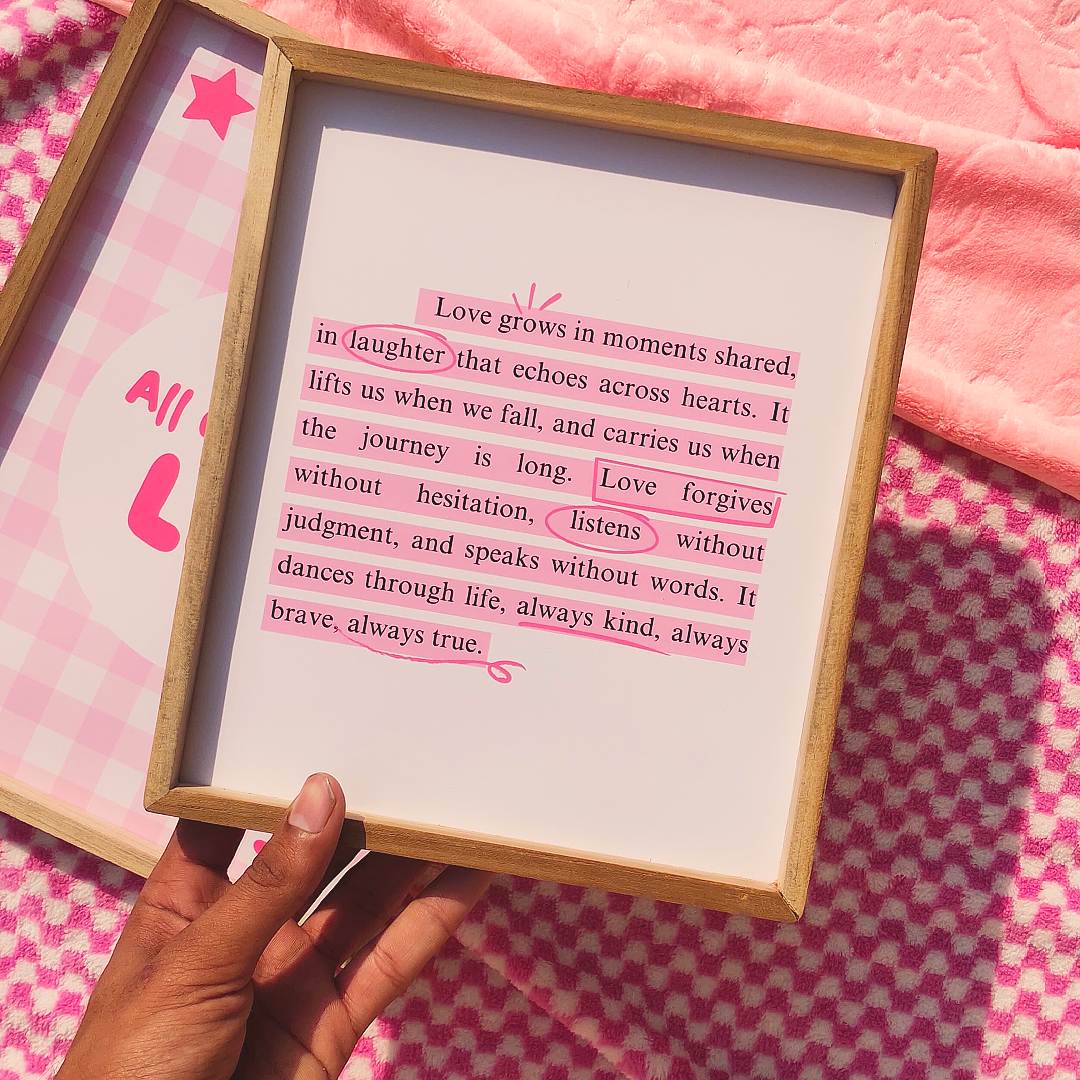 Love grows in moments shared,
in laughter that echoes across hearts. It
lifts us when we fall, and carries us when
the journey is long. Love forgives
without hesitation, listens without
judgment, and speaks without words. It
dances through life, always kind, always
brave, always true.
All
L